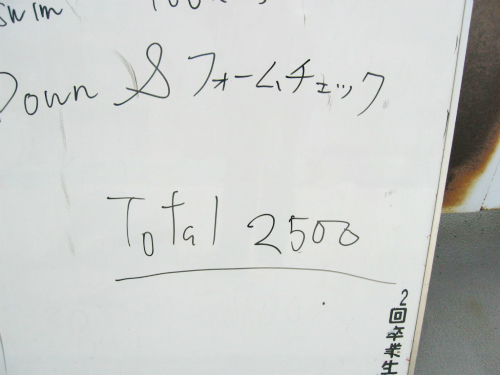 Swim 100
Down & フォームチェック
Total 2500
2回卒業生